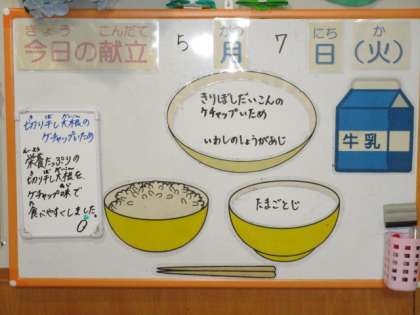 きょう こんだて がつ にち か
今日の献立 5 月 7 日 (火)
きりぼしだいこんの
ケチャップいため
いわしのしょうがあじ
牛乳
たまごとじ
切り干し大根の
ケチャップいため
栄養たっぷりの
切り干し大根を
ケチャップ味で
食べやすくしました。